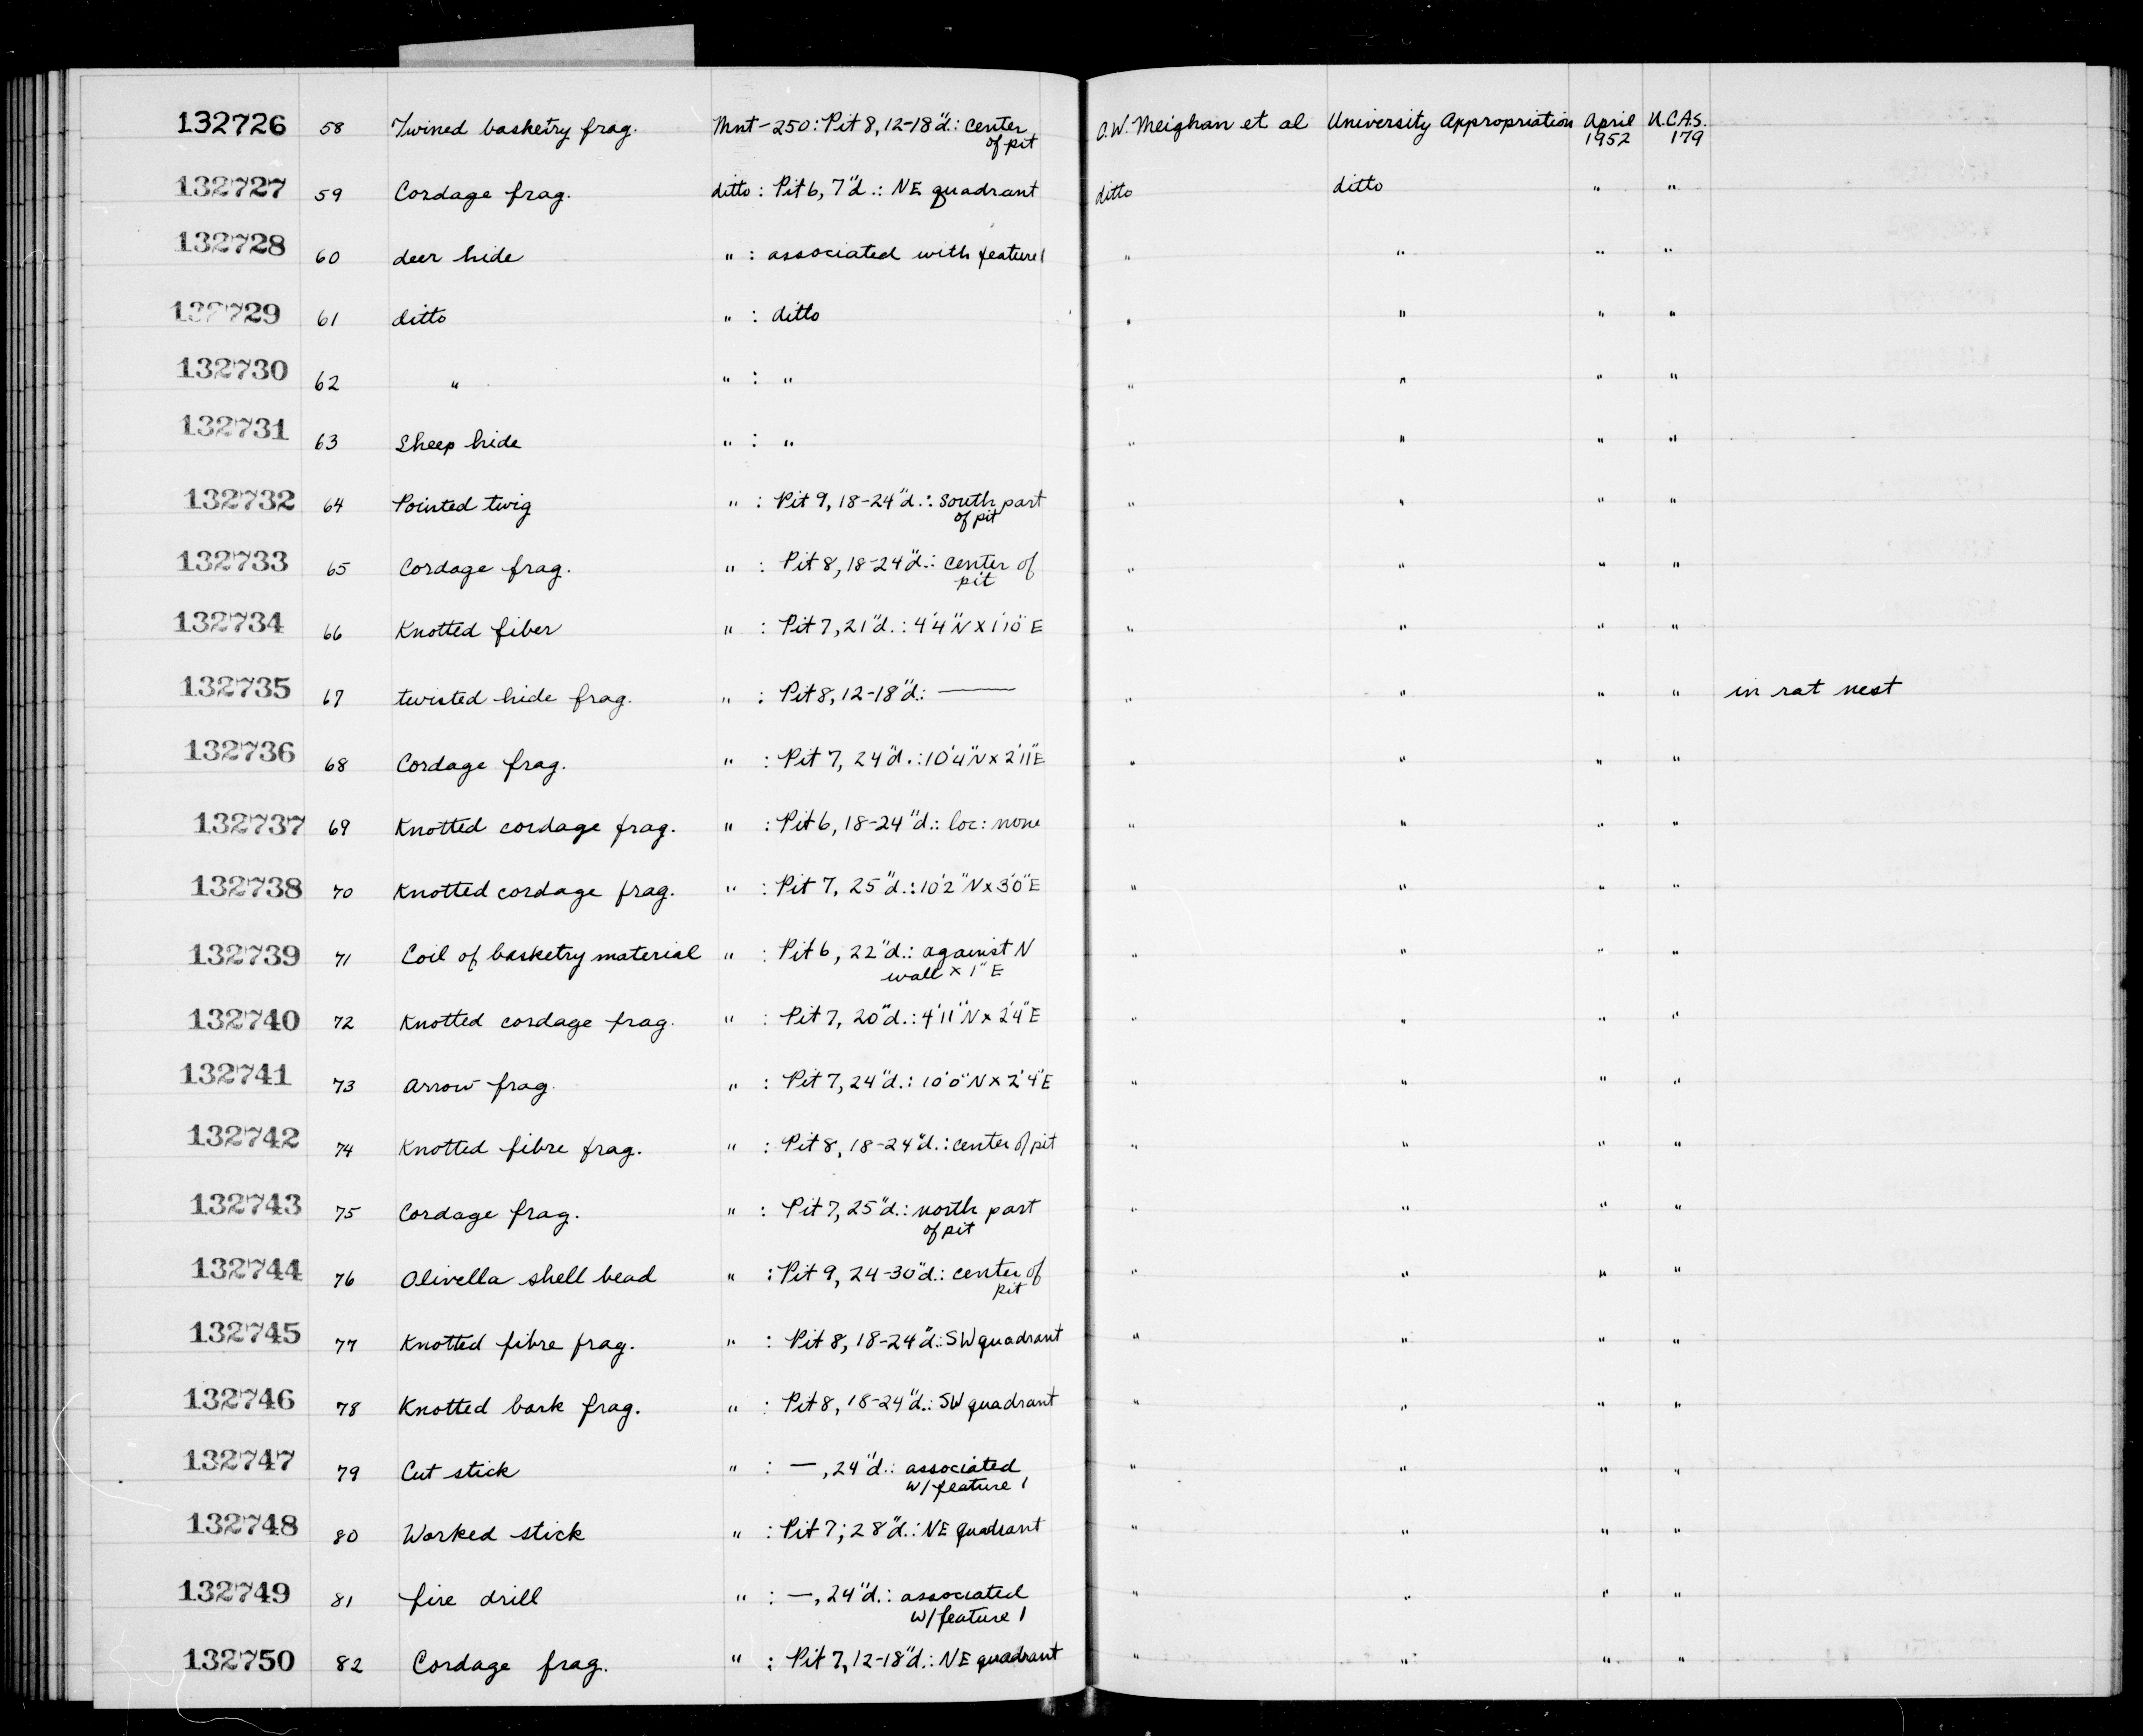 132726 58 Twined basketry frag. Mnt-250: Pit 8, 12-18"d.: center of pit C.W. Meighan et al University Appropriation April 1952 U.C.A.S. 179
132727 59 Cordage frag. ditto : Pit 6, 7"d.: NE quadrant ditto ditto " "
132728 60 deer hide " : associated with feature 1 " " " "
132729 61 ditto " : ditto " " " "
132730 62 " " : " " " " "
132731 63 Sheep hide " : " " " " "
132732 64 Pointed twig " : Pit 9, 18-24"d.: South part of pit " " " "
132733 65 Cordage frag. " : Pit 8, 18-24"d.: center of pit " " " "
132734 66 Knotted fiber " : Pit 7, 21"d.: 4'4"N x 1'10"E " " " "
132735 67 twisted hide frag. " : Pit 8, 12-18"d.: — " " " " in rat nest
132736 68 Cordage frag. " : Pit 7, 24"d.: 10'4"N x 2'11"E " " " "
132737 69 Knotted cordage frag. " : Pit 6, 18-24"d.: loc: none " " " "
132738 70 Knotted cordage frag. " : Pit 7, 25"d.: 10'2"N x 3'0"E " " " "
132739 71 Coil of basketry material " : Pit 6, 22"d.: against N wall x 1"E " " " "
132740 72 Knotted cordage frag. " : Pit 7, 20"d.: 4'11"N x 2'4"E " " " "
132741 73 Arrow frag. " : Pit 7, 24"d.: 10'0"N x 2'4"E " " " "
132742 74 Knotted fibre frag. " : Pit 8, 18-24"d.: center of pit " " " "
132743 75 Cordage frag. " : Pit 7, 25"d.: north part of pit " " " "
132744 76 Olivella shell bead " : Pit 9, 24-30"d.: center of pit " " " "
132745 77 Knotted fibre frag. " : Pit 8, 18-24"d.: SW quadrant " " " "
132746 78 Knotted bark frag. " : Pit 8, 18-24"d.: SW quadrant " " " "
132747 79 Cut stick " : —, 24"d.: associated w/ feature 1 " " " "
132748 80 Worked stick " : Pit 7; 28"d.: NE quadrant " " " "
132749 81 fire drill " : —, 24"d.: associated w/ feature 1 " " " "
132750 82 Cordage frag. " : Pit 7, 12-18"d.: NE quadrant " " " "